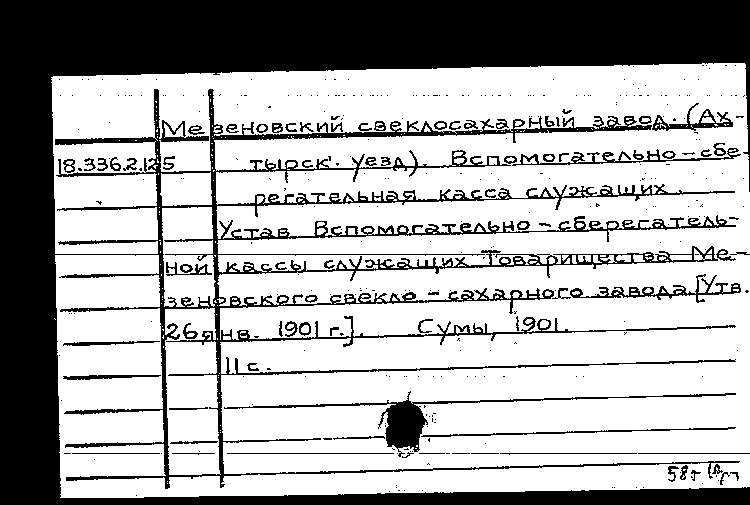 Мезеновский свеклосахарный завод. (Ах-
18.336.2.125 тырск. уезд). Вспомогательно-сбе-
регательная касса служащих.
Устав Вспомогательно-сберегатель-
ной кассы служащих Товарищества Ме-
зеновского свекло-сахарного завода. [Утв.
26 янв. 1901 г.]. Сумы, 1901.
11 с.